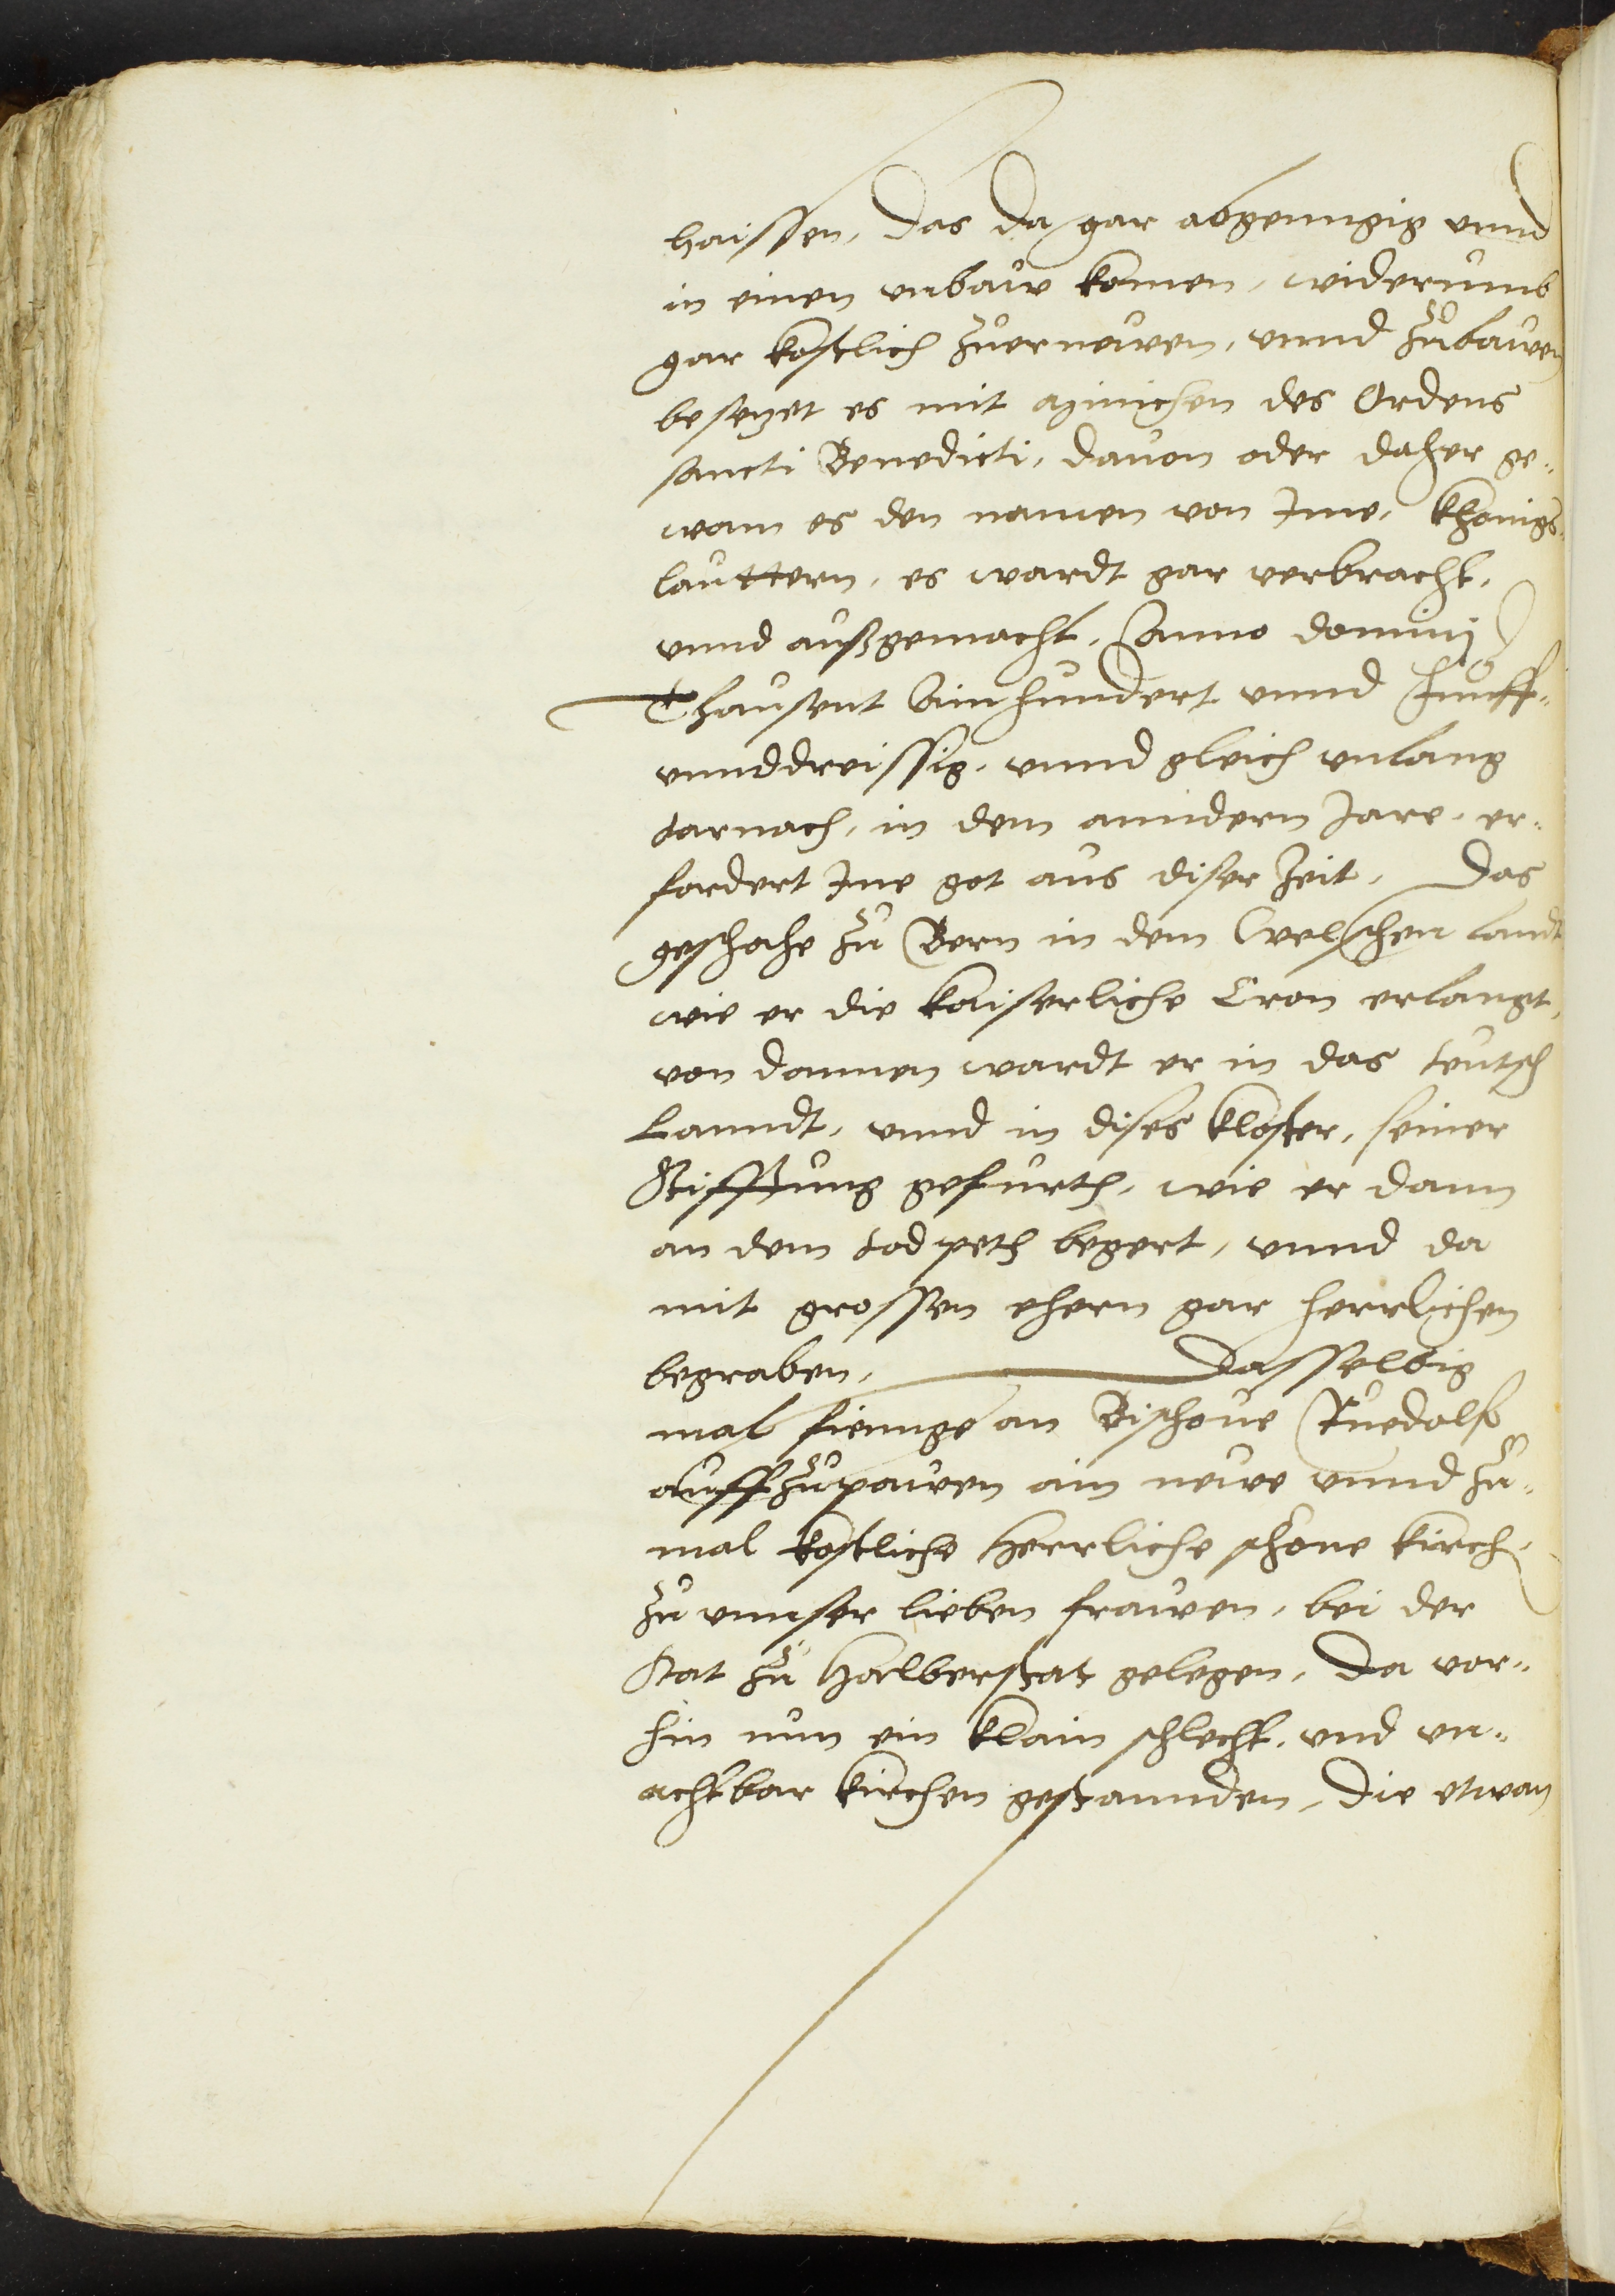 haissen, das da gar abgenngig vnnd
in einen vnbaiw komen, widerumb
gar kostlich zuerneuwen, vnnd zubauwen
besezet es mit Münichen des Ordens
sancti Benedicti, dauon oder daher ge-
wann es den namen von Jme, Khonigs-
lauttern, es wardt gar verbracht,
vnnd außgemacht, Anno dominj
Thausent Ainhundert vnnd Funff-
vnnddreissig, vnnd gleich vnlang
darnach, in dem anndern Jare, er-
fordert Jne got aus diser Zeit, Das
geschahe zu Bern in dem Welschen landt
wie er die kaiserliche Cron erlangt,
von dannen wardt er in das teutsch
Lanndt, vnnd in dises kloster, seiner
Stifftung gefurth, wie er dann
an dem tod peth begert, vnnd da
mit grossen ehern gar herrlichen
begraben, Dasselbig
mal fiennge an Bischoue Ruedolff
auffzupauwen ain neuwe vnnd zu-
mal kostliche herrliche schone kirch,
zu vnnser lieben frauwen, bei der
Stat zu Halberstat gelegen, Da vor-
hin nun ein klain schlecht, vnd vn-
achtbar kirchen gestannden, die etwan